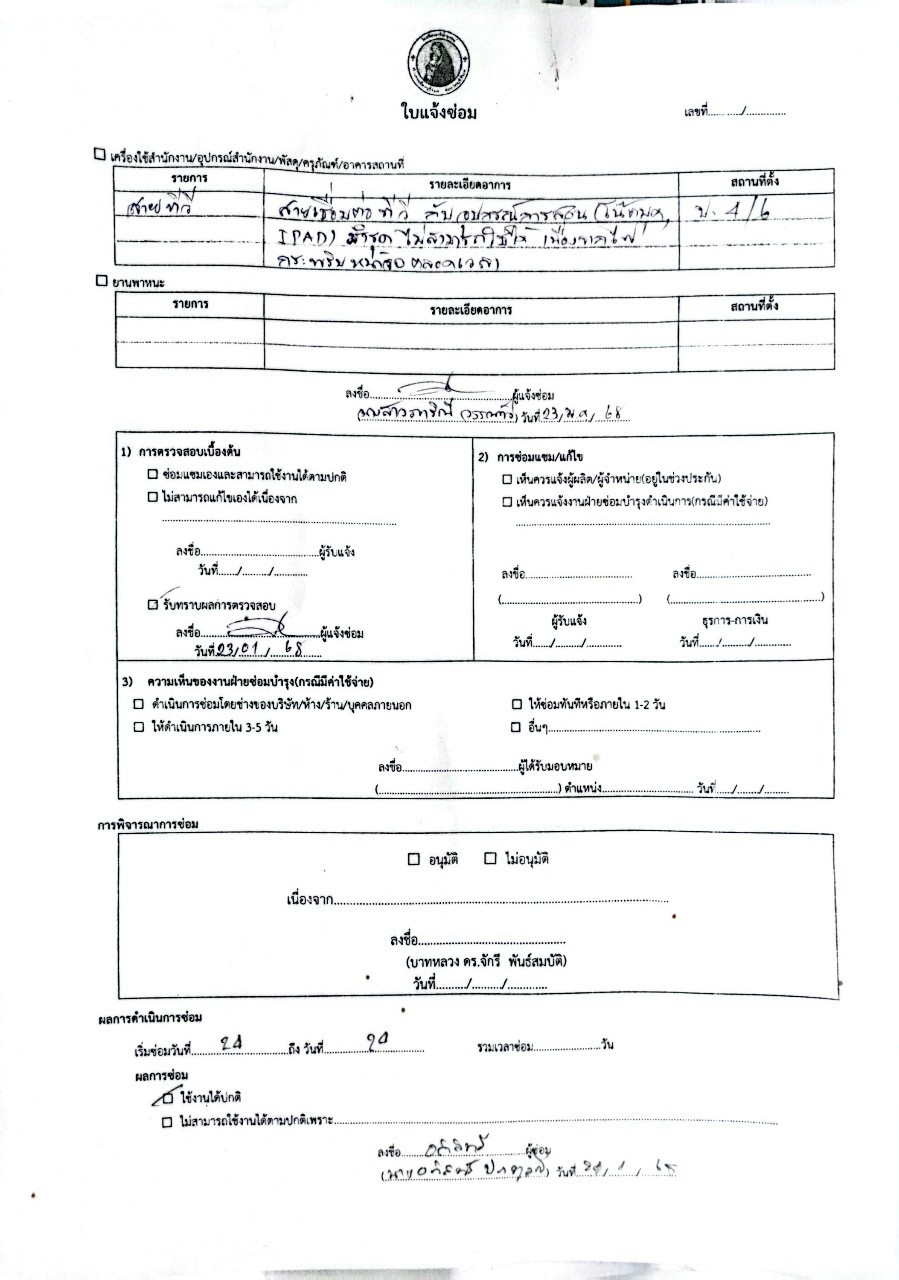 ใบแจ้งซ่อม
เลขที่...... ..../.............
☐ เครื่องใช้สำนักงาน/อุปกรณ์สำนักงาน/พัสดุ/ครุภัณฑ์/อาคารสถานที่
รายการ รายละเอียดอาการ สถานที่ตั้ง
สายทีวี สายเชื่อมต่อ ทีวี กับอุปกรณ์การสอน ป. 4/6
IPAD) ชำรุด ไม่สามารถใช้ได้ เนื่องจากไฟ
กระพริบ ตลอดเวลา
☐ ยานพาหนะ
รายการ รายละเอียดอาการ สถานที่ตั้ง
ลงชื่อ..............................ผู้แจ้งซ่อม
วันที่ 23/ม.ค/68
1) การตรวจสอบเบื้องต้น
☐ ซ่อมแซมเองและสามารถใช้งานได้ตามปกติ
☐ ไม่สามารถแก้ไขเองได้เนื่องจาก
ลงชื่อ..............................ผู้รับแจ้ง
วันที่....../........./...........
☑ รับทราบผลการตรวจสอบ
ลงชื่อ..............................ผู้แจ้งซ่อม
วันที่ 23/01/68
2) การซ่อมแซม/แก้ไข
☐ เห็นควรแจ้งผู้ผลิต/ผู้จำหน่าย(อยู่ในช่วงประกัน)
☐ เห็นควรแจ้งงานฝ่ายซ่อมบำรุงดำเนินการ(กรณีมีค่าใช้จ่าย)
ลงชื่อ.............................. ลงชื่อ..............................
(........................................) (........................................)
ผู้รับแจ้ง ธุรการ-การเงิน
วันที่....../........./........... วันที่....../........./...........
3) ความเห็นของงานฝ่ายซ่อมบำรุง(กรณีมีค่าใช้จ่าย)
☐ ดำเนินการซ่อมโดยช่างของบริษัท/ห้าง/ร้าน/บุคคลภายนอก ☐ ให้ซ่อมทันทีหรือภายใน 1-2 วัน
☐ ให้ดำเนินการภายใน 3-5 วัน ☐ อื่นๆ..............................
ลงชื่อ..............................ผู้ได้รับมอบหมาย
(........................................) ตำแหน่ง.............................. วันที่....../......./........
การพิจารณาการซ่อม
☐ อนุมัติ ☐ ไม่อนุมัติ
เนื่องจาก..............................
ลงชื่อ..............................
(บาทหลวง ดร.จักรี พันธ์สมบัติ)
วันที่........./........./............
ผลการดำเนินการซ่อม
เริ่มซ่อมวันที่ 24 ถึง วันที่ 24 รวมเวลาซ่อม....................วัน
ผลการซ่อม
☑ ใช้งานได้ปกติ
☐ ไม่สามารถใช้งานได้ตามปกติเพราะ..............................
ลงชื่อ..............................ผู้ซ่อม
วันที่ 24/1/68